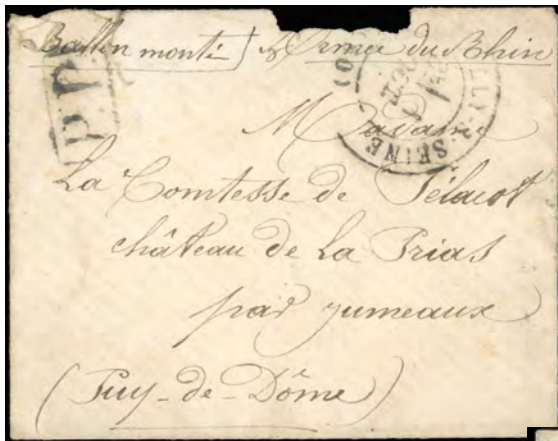 Ballon monté Armée du Rhin
P.P.
LLY-S-SEINE
Madame
La Comtesse de
château de La Frias
par jumeaux
(Puy-de-Dôme)